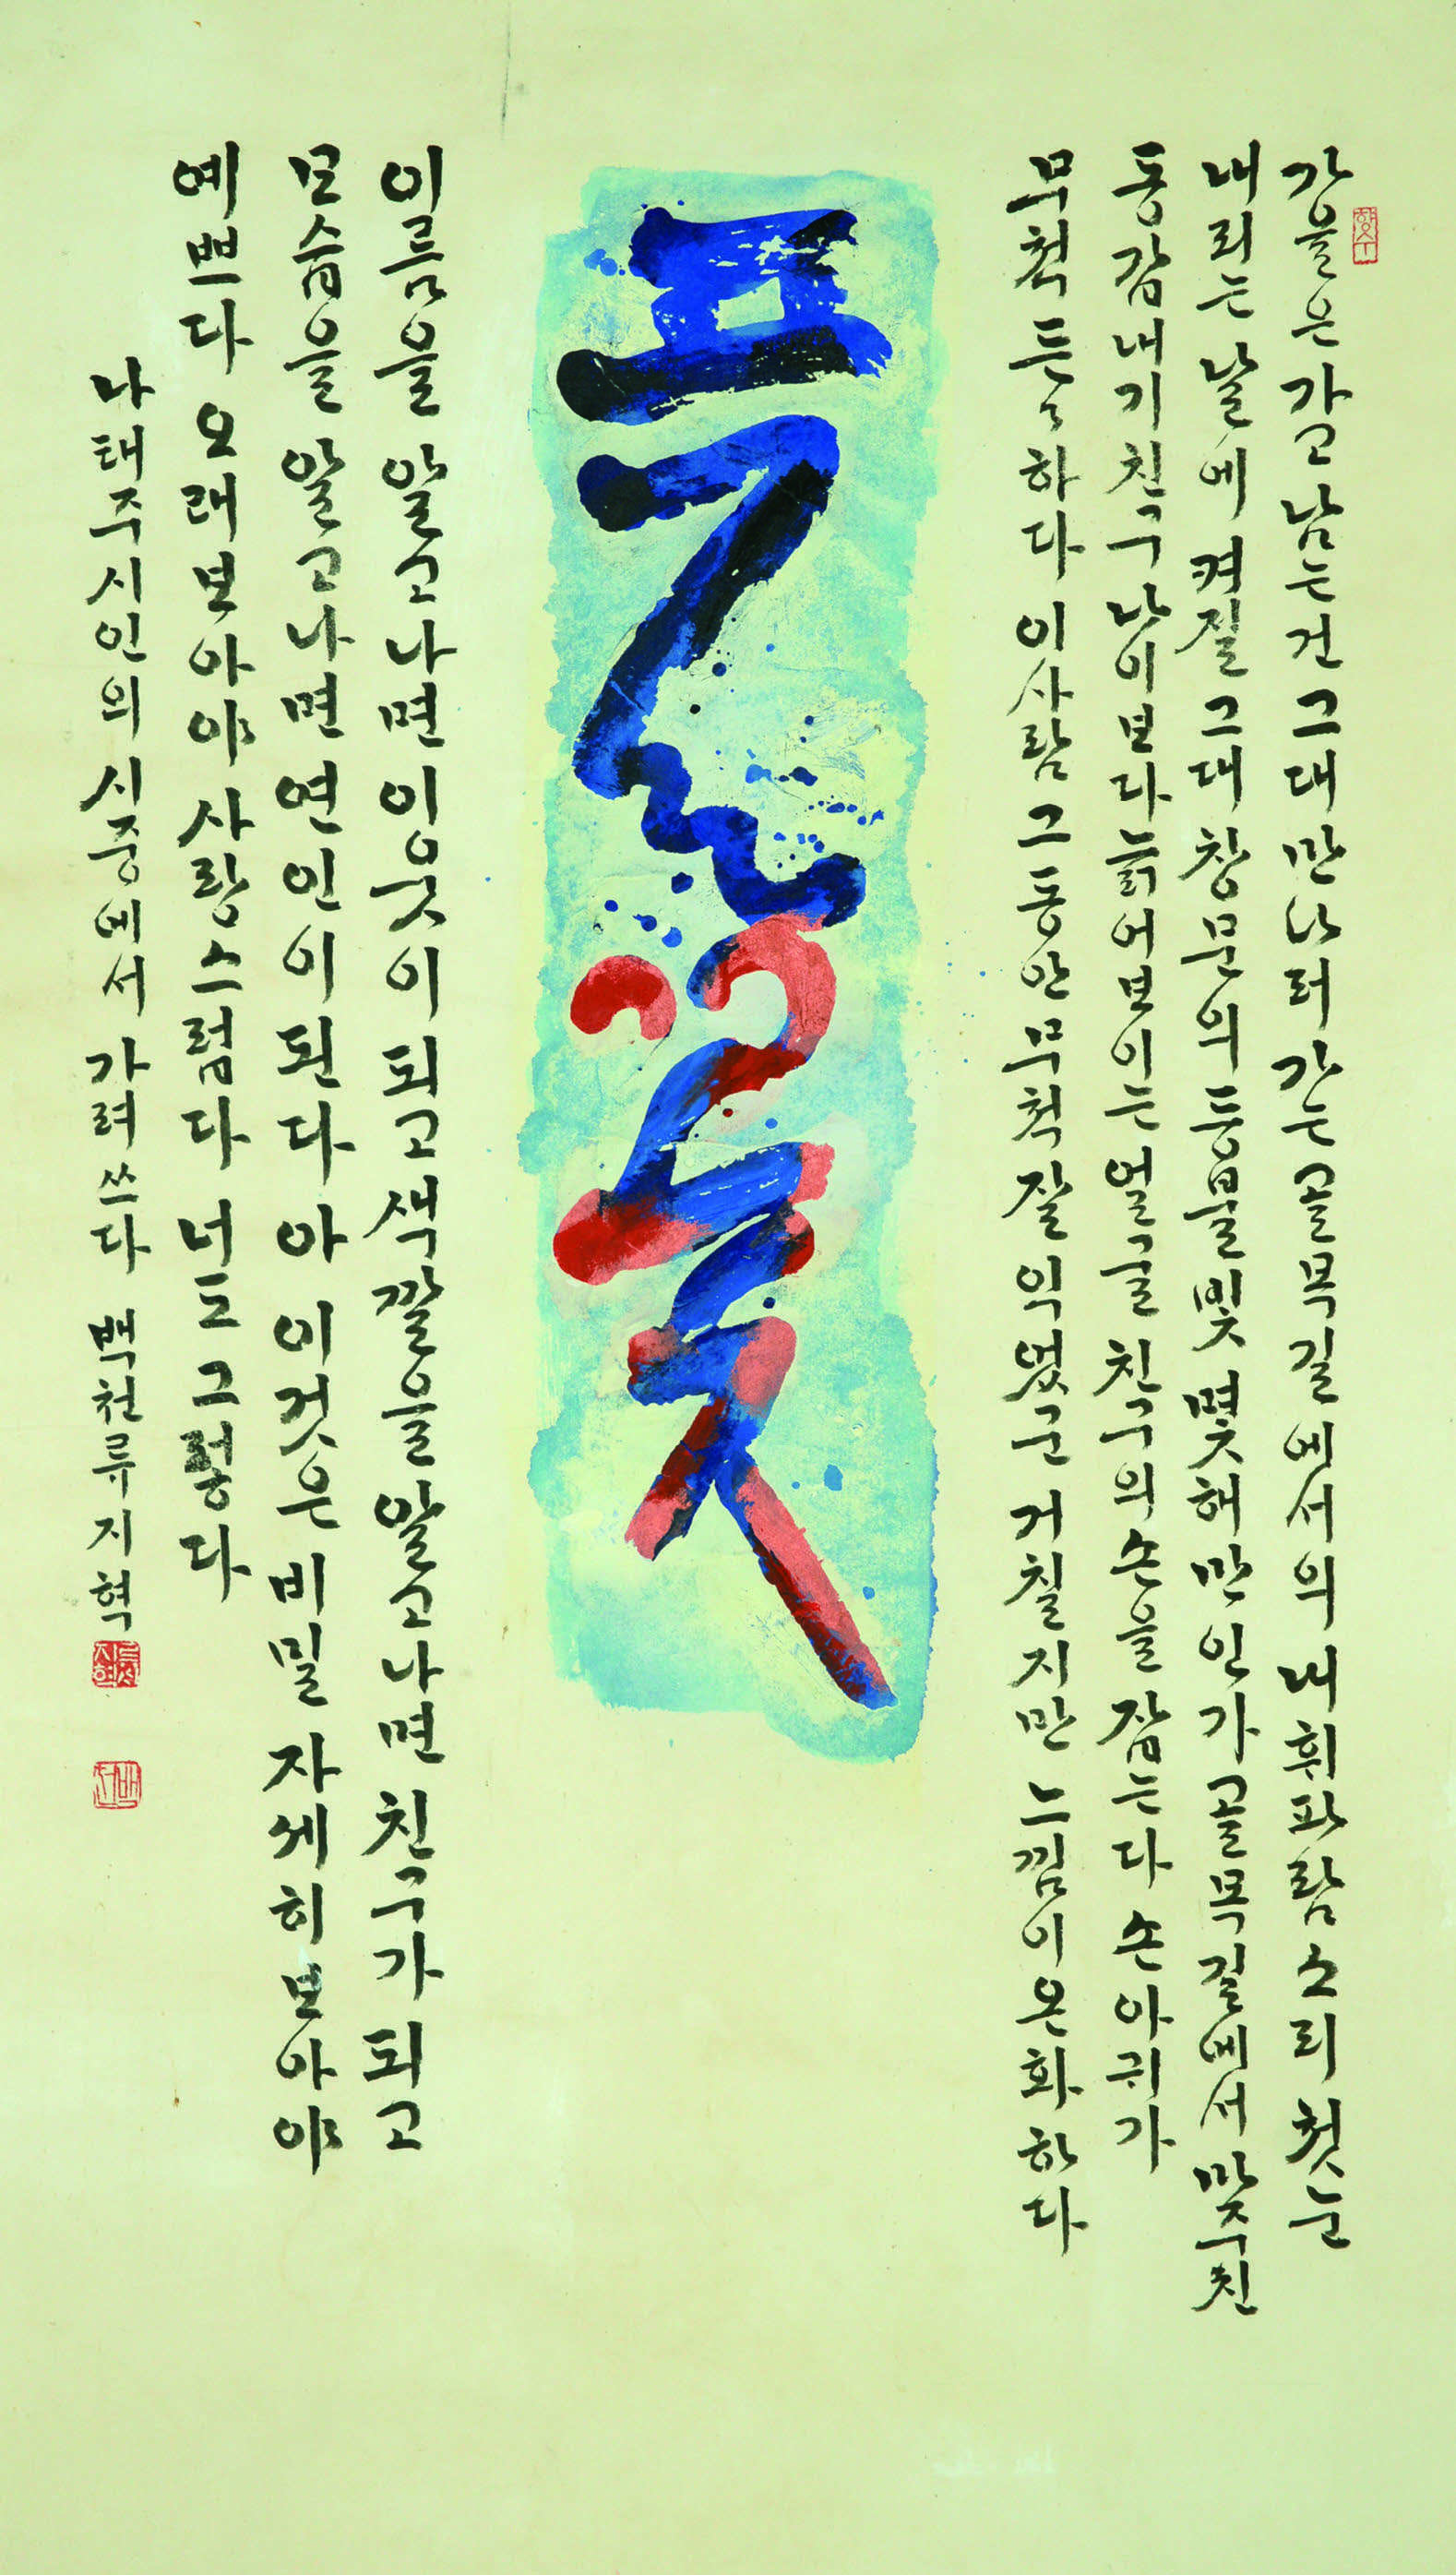 가을은 가고 남는건 그대 만나러 가는 골목길에서의 내 휘파람소리 첫눈
내리는 날에 켜질 그대 창문의 등불빛 몇해만인가 골목길에서 마주친
동갑내기 친구 나이보다 늙어보이는 얼굴 친구의 손을 잡는다 손아귀가
무척 든〻하다 이사람 그동안 무척 잘 익었군 거칠지만 느낌이 온화하다
풀꽃
이름을 알고나면 이웃이 되고 색깔을 알고나면 친구가 되고
모습을 알고나면 연인이 된다 아 이것은 비밀 자세히 보아야
예쁘다 오래보아야 사랑스럽다 너도 그렇다
나태주 시인의 시중에서 가려 쓰다 백천 류지혁